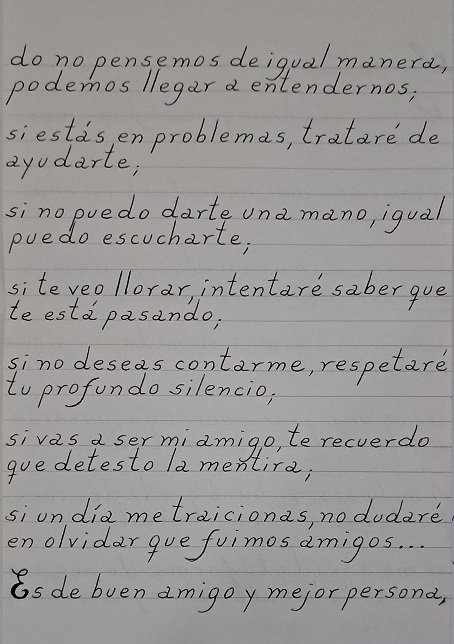 do no pensemos de igual manera,
podemos llegar a entendernos;
si estás en problemas, trataré de
ayudarte;
si no puedo darte una mano, igual
puedo escucharte;
si te veo llorar, intentaré saber que
te está pasando;
si no deseas contarme, respetaré
tu profundo silencio;
si vas a ser mi amigo, te recuerdo
que detesto la mentira;
si un día me traicionas, no dudaré
en olvidar que fuimos amigos...
Es de buen amigo y mejor persona,